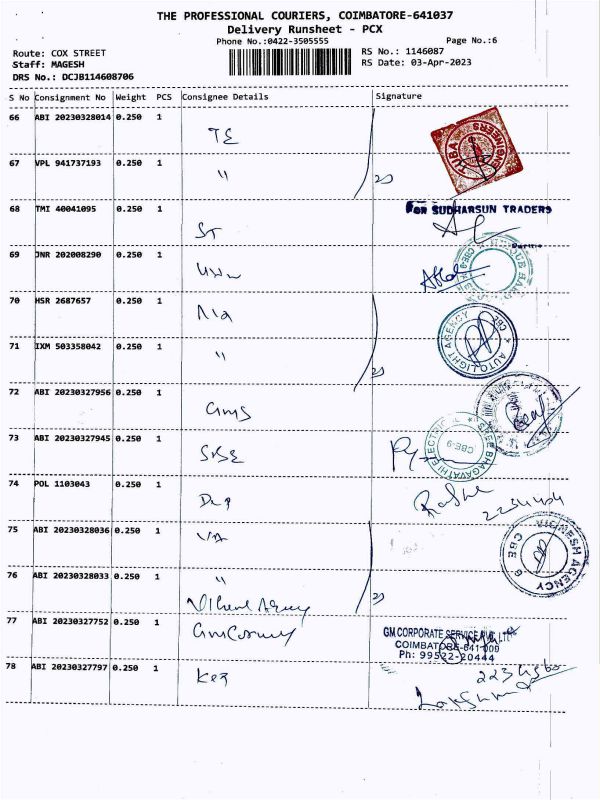 THE PROFESSIONAL COURIERS, COIMBATORE-641037
Delivery Runsheet - PCX
Phone No.:0422-3505555
Page No.:6
Route: COX STREET
RS No.: 1146087
Staff: MAGESH
RS Date: 03-Apr-2023
DRS No.: DCJB114608706
S No Consignment No Weight PCS Consignee Details Signature
66 ABI 20230328014 0.250 1
TE
67 VPL 941737193 0.250 1
"
68 TMI 40041095 0.250 1
FOR SUDHARSUN TRADERS
ST
69 JNR 202008290 0.250 1
70 HSR 2687657 0.250 1
AUTOLIGHT AGENCY CBE
71 IXM 503358042 0.250 1
"
72 ABI 20230327956 0.250 1
GMS
73 ABI 20230327945 0.250 1
SREE BHAGAVATHI ELECTRICAL CBE-9
74 POL 1103043 0.250 1
75 ABI 20230328036 0.250 1
VA
VIGNESH AGENCY CBE
76 ABI 20230328033 0.250 1
"
77 ABI 20230327752 0.250 1
GM CORPORATE SERVICE PVT. LTD
COIMBATORE-641 009
Ph: 99522-20444
78 ABI 20230327797 0.250 1